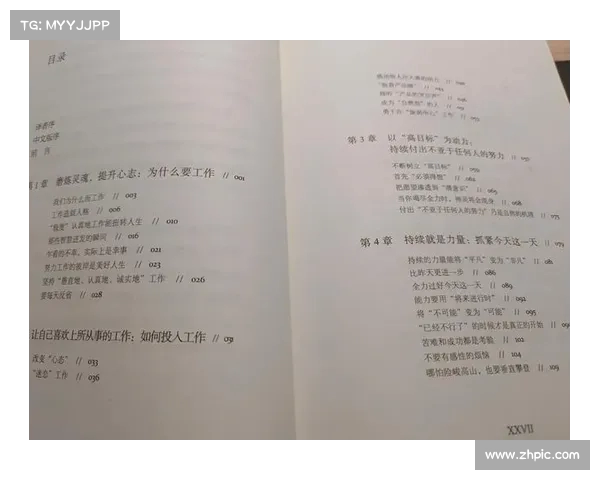 TG: MYYJJPP
目录
译者序
中文版序
前言
第1章 磨炼灵魂，提升心志：为什么要工作 // 001
我们为什么而工作 // 003
工作造就人格 // 006
“极度”认真地工作能扭转人生 // 010
// 016
乍看的不幸，实际上是幸事 // 021
努力工作的彼岸是美好人生 // 023
坚持“愚直地、认真地、诚实地”工作 // 026
要每天反省 // 028
让自己喜欢上所从事的工作：如何投入工作 // 031
改变“心态” // 033
“迷恋”工作 // 036
第3章 以“高目标”为动力：
持续付出不亚于任何人的努力
不断树立“高目标”
首先“必须得想”
把愿望渗透到“潜意识”
当你竭尽全力时，神灵将会现身
付出“不亚于任何人的努力”乃是自然的机理 // 075
第4章 持续就是力量：抓紧今天这一天 // 079
持续的力量能将“平凡”变为“非凡” // 081
比昨天更进一步 // 086
全力过好今天这一天 // 089
能力要用“将来进行时” // 092
将“不可能”变为“可能” // 095
“已经不行了”的时候才是真正的开始 // 099
苦难和成功都是考验 // 102
不要有感性的烦恼 // 104
哪怕险峻高山，也要垂直攀登 // 107
XXVII
www.zhpic.com